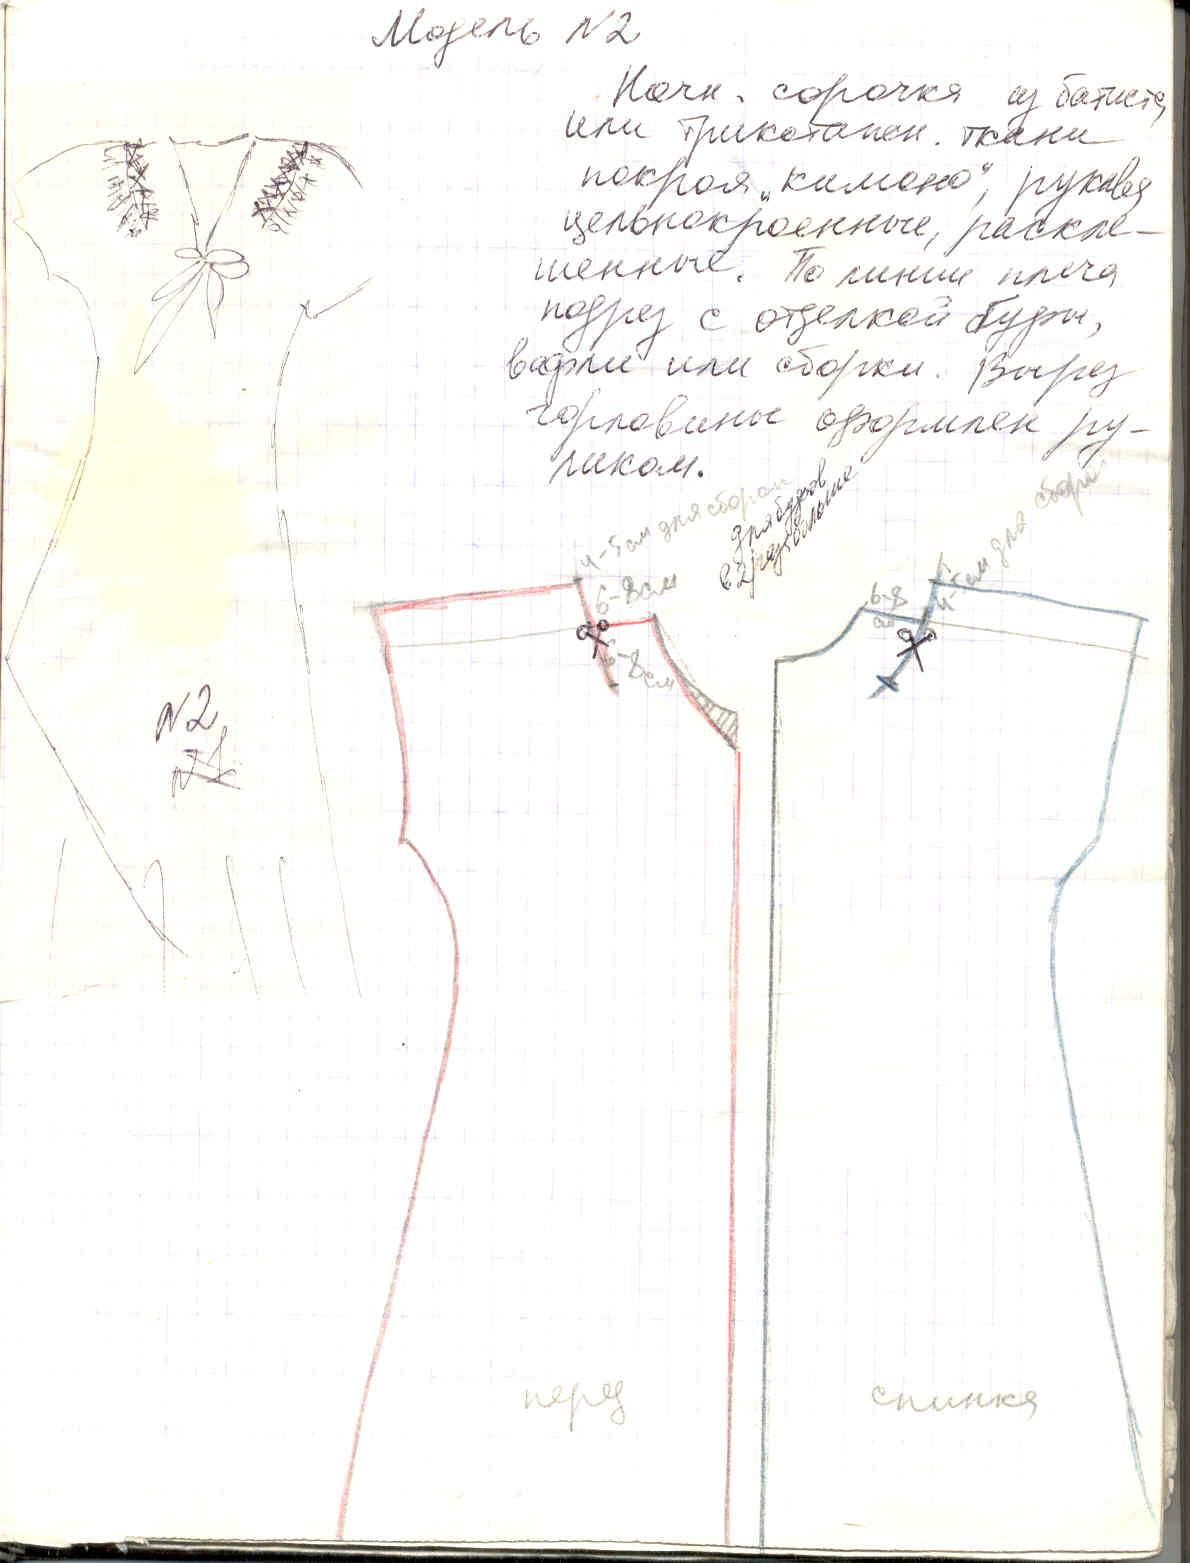 Модель N2
Ночн. сорочка из батиста,
или трикотажн. ткани
покроя „кимоно", рукава
цельнокроенные, раскле-
шенные. По линии плеча
подрез с отделкой буфы,
вафли или сборки. Вырез
горловины оформлен ру-
ликом.
4-5 см для сборки
для буфов
в 2 раза больше
4-5 см для сборо
6-8 см
6-8 см
6-8
см
N2
перед
спинка